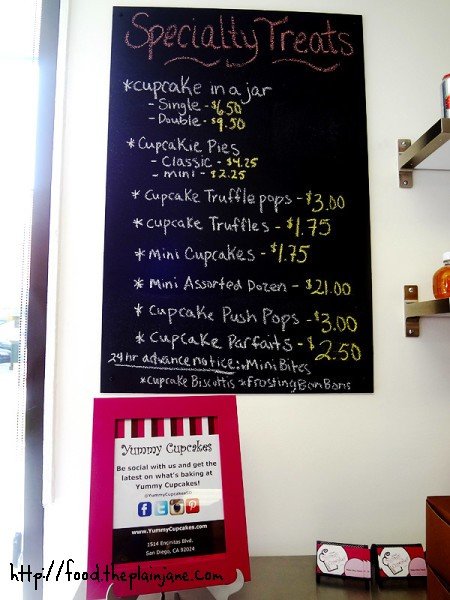 Specialty Treats
*Cupcake in a jar
- Single - $6.50
- Double - $9.50
*Cupcakie Pies
- Classic - $4.25
- mini - $2.25
* Cupcake Truffle pops - $3.00
* Cupcake Truffles - $1.75
* Mini Cupcakes - $1.75
* Mini Assorted Dozen - $21.00
* Cupcake Push Pops - $3.00
* Cupcake Parfaits - $2.50
24 hr advance notice: *Mini Bites
*Cupcake Biscottis *Frosting Bon Bons
Yummy Cupcakes
Be social with us and get the
latest on what's baking at
Yummy Cupcakes!
@YummyCupcakesSD
www.YummyCupcakes.com
1514 Encinitas Blvd.
San Diego, CA 92024
http://food.theplainjane.com